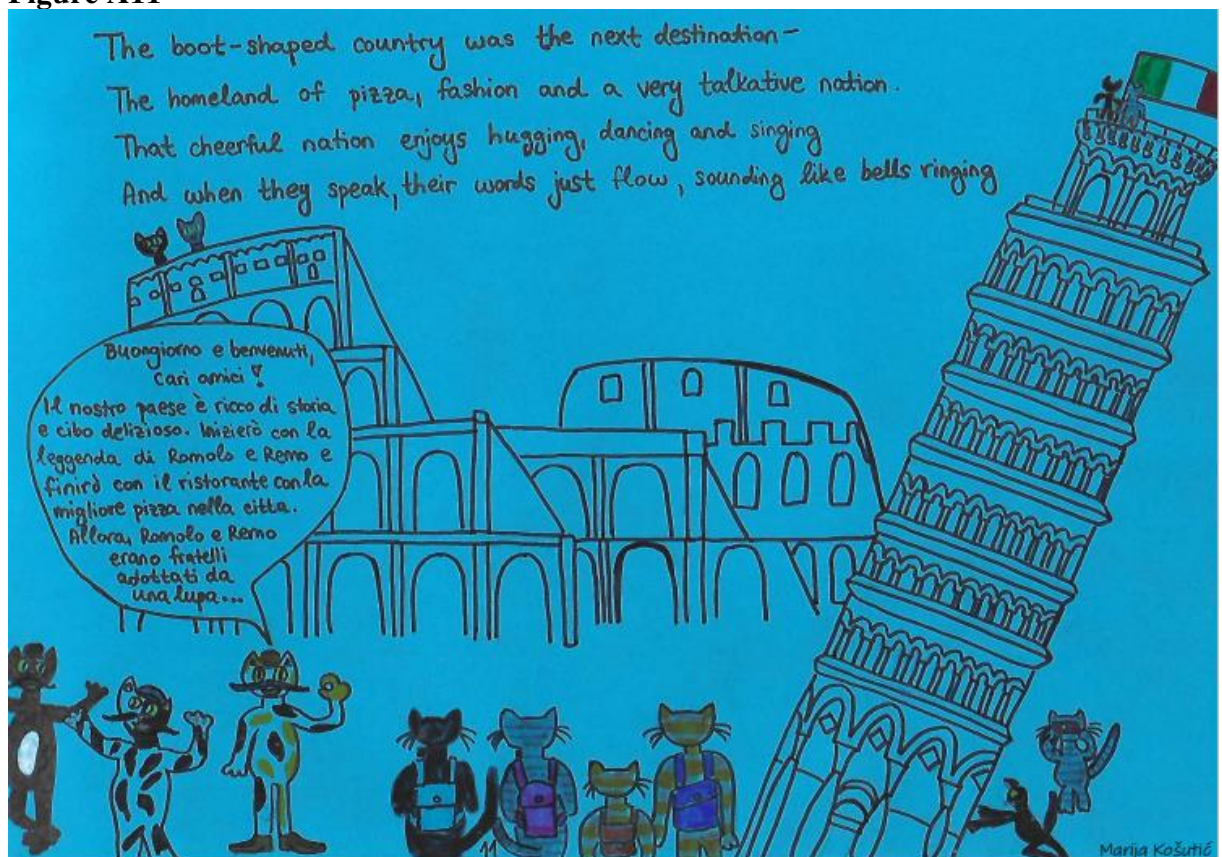 Figure A11
The boot-shaped country was the next destination-
The homeland of pizza, fashion and a very talkative nation.
That cheerful nation enjoys hugging, dancing and singing
And when they speak, their words just flow, sounding like bells ringing
Buongiorno e benvenuti,
Cari amici!
Il nostro paese è ricco di storia
e cibo delizioso. Inizierò con la
leggenda di Romolo e Remo e
finirò con il ristorante con la
migliore pizza nella citta.
Allora, Romolo e Remo
erano fratelli
adottati da
una lupa...
11
Marija Košutić